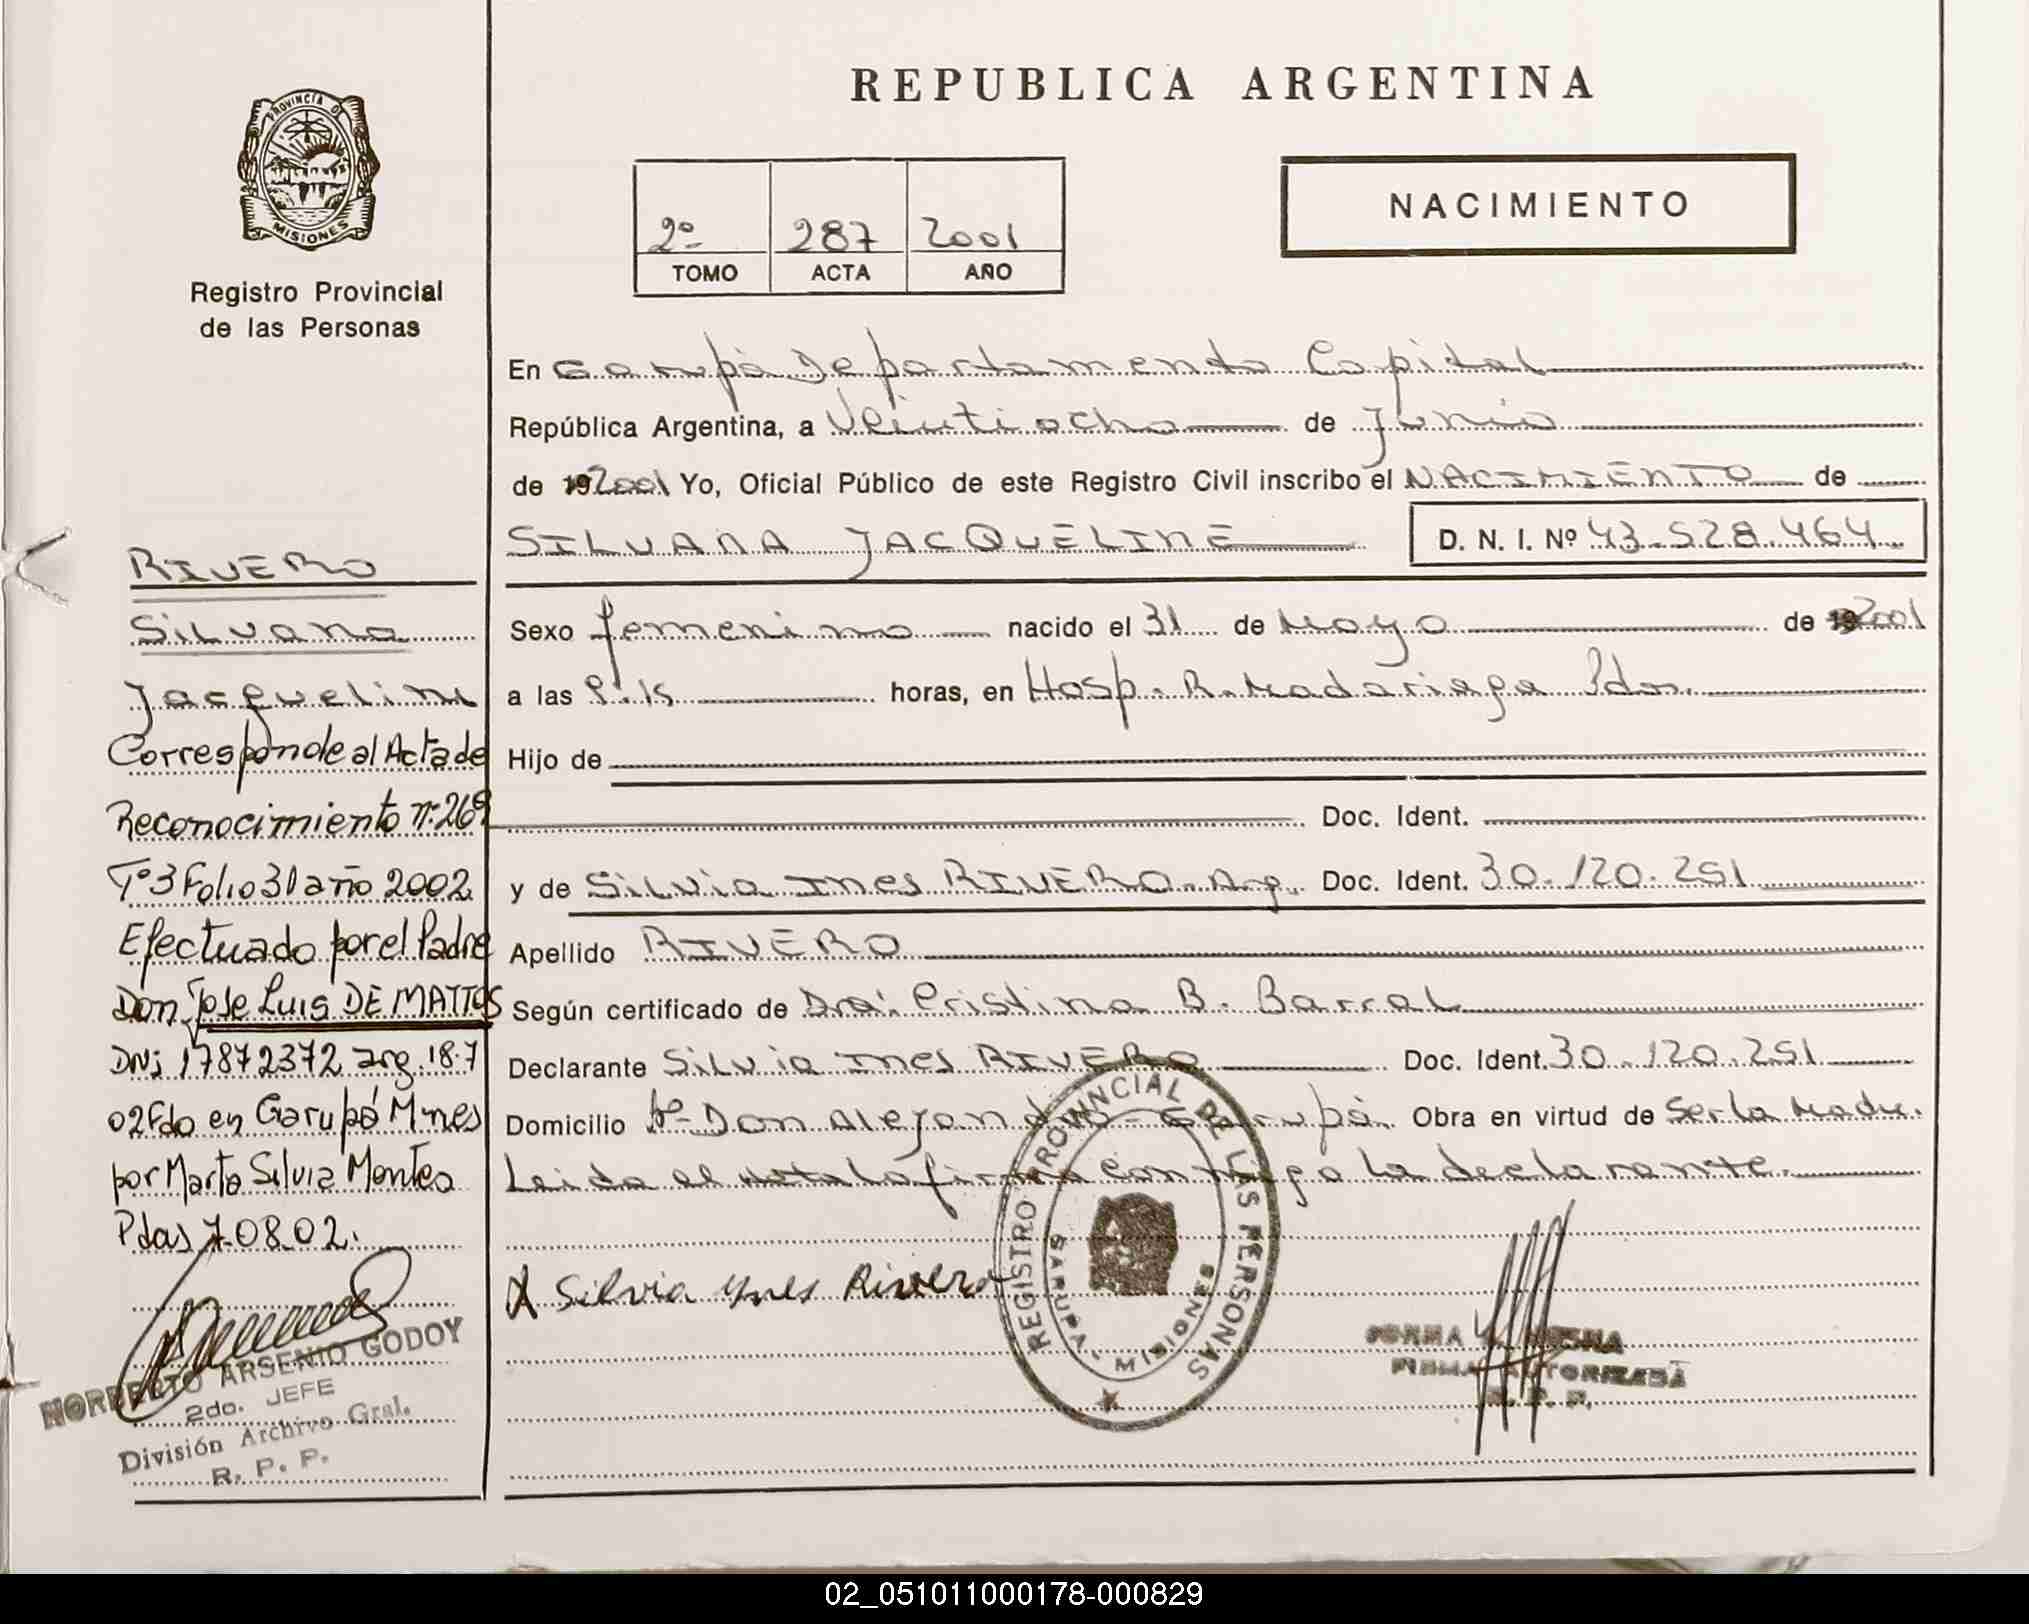 REPUBLICA ARGENTINA
PROVINCIA DE
MISIONES
Registro Provincial
de las Personas
2º 287 2001
TOMO ACTA AÑO
NACIMIENTO
En Garupá Departamento Capital
República Argentina, a Veintiocho de Junio
de 2001 Yo, Oficial Público de este Registro Civil inscribo el NACIMIENTO de
SILVANA JACQUELINE D. N. I. Nº 43.528.464
Sexo femenino nacido el 31 de Mayo de 2001
a las horas, en Hosp. R. Madariaga Pdas.
Hijo de
Doc. Ident.
y de Silvia Ines RIVERO. Arg. Doc. Ident. 30.120.251
Apellido RIVERO
Según certificado de Dra. Cristina B. Barral
Declarante Silvia Ines RIVERO Doc. Ident. 30.120.251
Domicilio Bº Don Alejandro - Garupá Obra en virtud de Ser la Madre.
Leida el Acta la firma conmigo la declarante.
X Silvia Ynes Rivero
REGISTRO PROVINCIAL DE LAS PERSONAS
GARUPA - MISIONES
FIRMA AUTORIZADA
R. P. P.
RIVERO
Silvana
Jacqueline
Corresponde al Acta de
Reconocimiento nº 269
Tº3 Folio 31 año 2002
Efectuado por el Padre
Don Jose Luis DE MATTOS
DNi 17872372 arg. 18.7
02 Fdo en Garupá Mnes
por Marta Silvia Montes
Pdas 7.08.02.
NORBERTO ARSENIO GODOY
2do. JEFE
División Archivo Gral.
R. P. P.
02_051011000178-000829